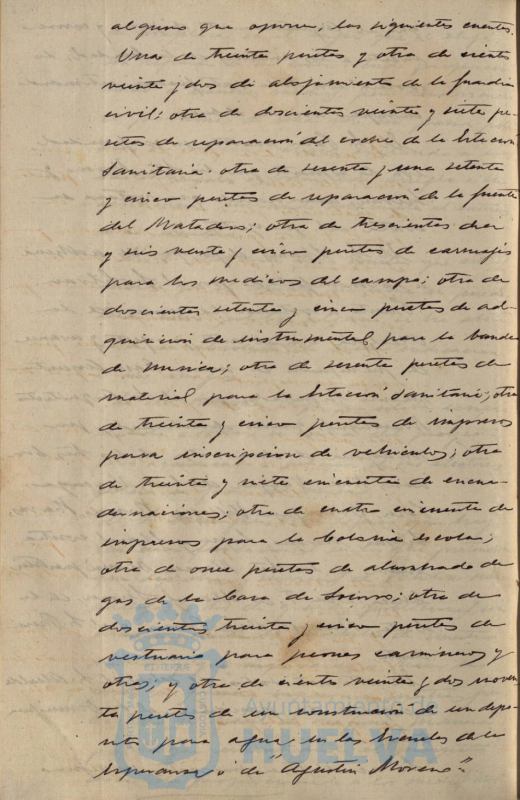 alguno que oponer, las siguientes cuentas.
Una de treinta pesetas y otra de ciento
veinte y dos de alojamiento de la Guardia
civil; otra de doscientas veinte y siete pe-
setas de reparación del coche de la Estación
Sanitaria. otra de sesenta y una setenta
y cinco pesetas de reparación de la fuente
del Matadero; otra de trescientas diez
y seis veinte y cinco pesetas de carruajes
para los medicos del campo; otra de
doscientas setenta y cinco pesetas de ad-
quisicion de instrumental para la banda
de musica; otra de sesenta pesetas de
material para la Estación Sanitaria; otra
de treinta y cinco pesetas de impresos
para inscripcion de vehiculos; otra
de treinta y siete cincuenta de encua-
dernaciones; otra de cuatro cincuenta de
impresos para la Colonia escolar;
otra de once pesetas de alumbrado de
gas de la Casa de Socorro; otra de
doscientas treinta y cinco pesetas de
vestuario para peones camineros y
otros, y otra de ciento veinte y dos noven-
ta pesetas de un construcion de un depo-
sito para agua en las Escuelas de la
Esperanza o de "Agustin Moreno".
Ayuntamiento de
HUELVA